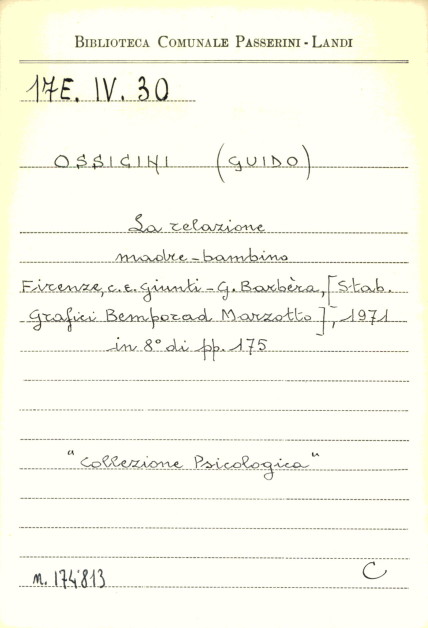 BIBLIOTECA COMUNALE PASSERINI - LANDI
17E. IV. 30
OSSICINI (GUIDO)
La relazione
madre-bambino
Firenze, c.e. Giunti - G. Barbèra, [Stab.
Grafici Bemporad Marzotto], 1971
in 8° di pp. 175
"Collezione Psicologica"
n. 174813 C